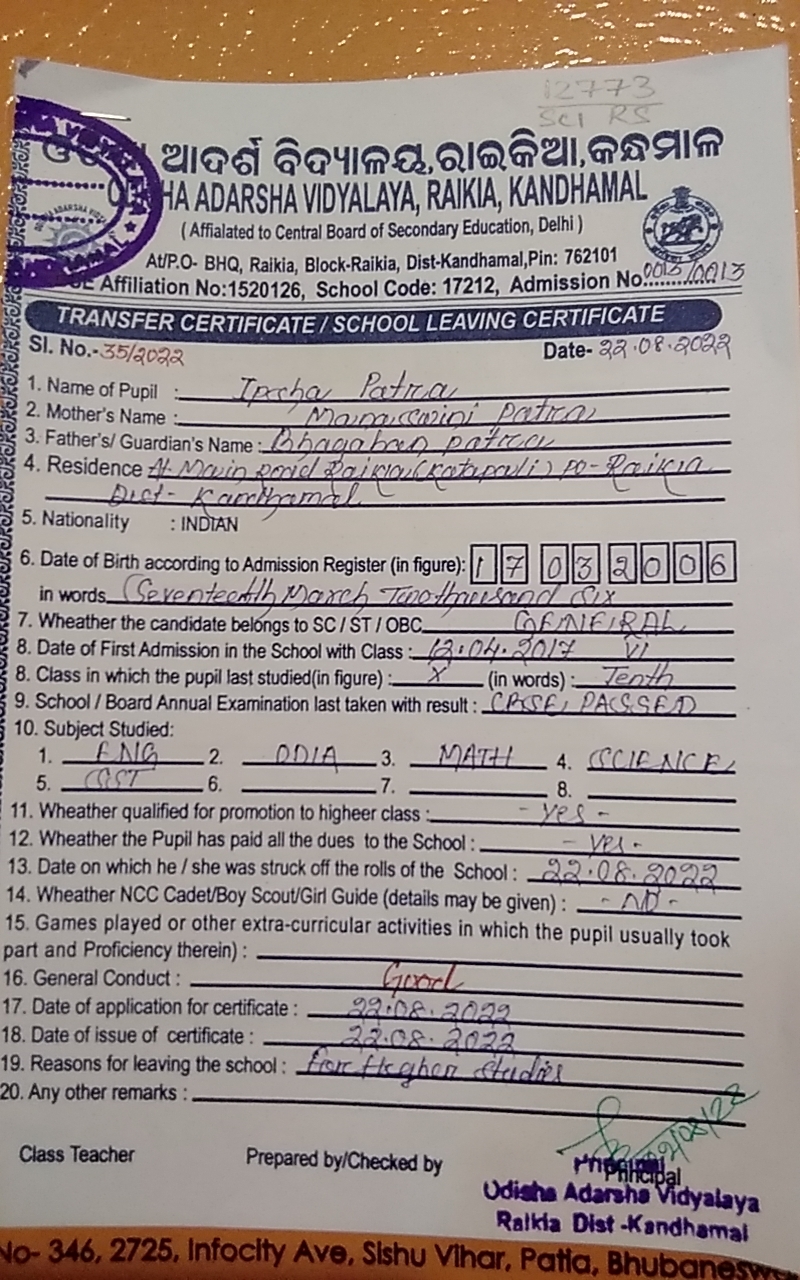 12773
SCI RS
ଆଦର୍ଶ ବିଦ୍ୟାଳୟ,ରାଇକିଆ,କନ୍ଧମାଳ
HA ADARSHA VIDYALAYA, RAIKIA, KANDHAMAL
( Affialated to Central Board of Secondary Education, Delhi )
At/P.O- BHQ, Raikia, Block-Raikia, Dist-Kandhamal,Pin: 762101
Affiliation No:1520126, School Code: 17212, Admission No.0013/0013
TRANSFER CERTIFICATE / SCHOOL LEAVING CERTIFICATE
Sl. No.-35/2022 Date- 22.08.2022
1. Name of Pupil : Ipscha Patra
2. Mother's Name : Manaswini Patra
3. Father's/ Guardian's Name : Bhagaban patra
4. Residence At-Main Road Raikia(Katapali) PO-Raikia
Dist- Kandhamal
5. Nationality : INDIAN
6. Date of Birth according to Admission Register (in figure): 17 03 2006
in words (Seventeenth March Two thousand Six
7. Wheather the candidate belongs to SC / ST / OBC GENERAL
8. Date of First Admission in the School with Class : 12.04.2017 VI
8. Class in which the pupil last studied(in figure) : X (in words) : Tenth
9. School / Board Annual Examination last taken with result : CBSE, PASSED
10. Subject Studied:
1. ENG 2. ODIA 3. MATH 4. SCIENCE
5. SST 6. 7. 8.
11. Wheather qualified for promotion to higheer class : - yes -
12. Wheather the Pupil has paid all the dues to the School : - yes -
13. Date on which he / she was struck off the rolls of the School : 22.08.2022
14. Wheather NCC Cadet/Boy Scout/Girl Guide (details may be given) : - NO -
15. Games played or other extra-curricular activities in which the pupil usually took
part and Proficiency therein) :
16. General Conduct : Good
17. Date of application for certificate : 22.08.2022
18. Date of issue of certificate : 22.08.2022
19. Reasons for leaving the school : For Higher Studies
20. Any other remarks :
22/08/22
Class Teacher Prepared by/Checked by Principal
Principal
Odisha Adarsha Vidyalaya
Raikia Dist -Kandhamal
No- 346, 2725, Infocity Ave, Sishu Vihar, Patia, Bhubaneswar